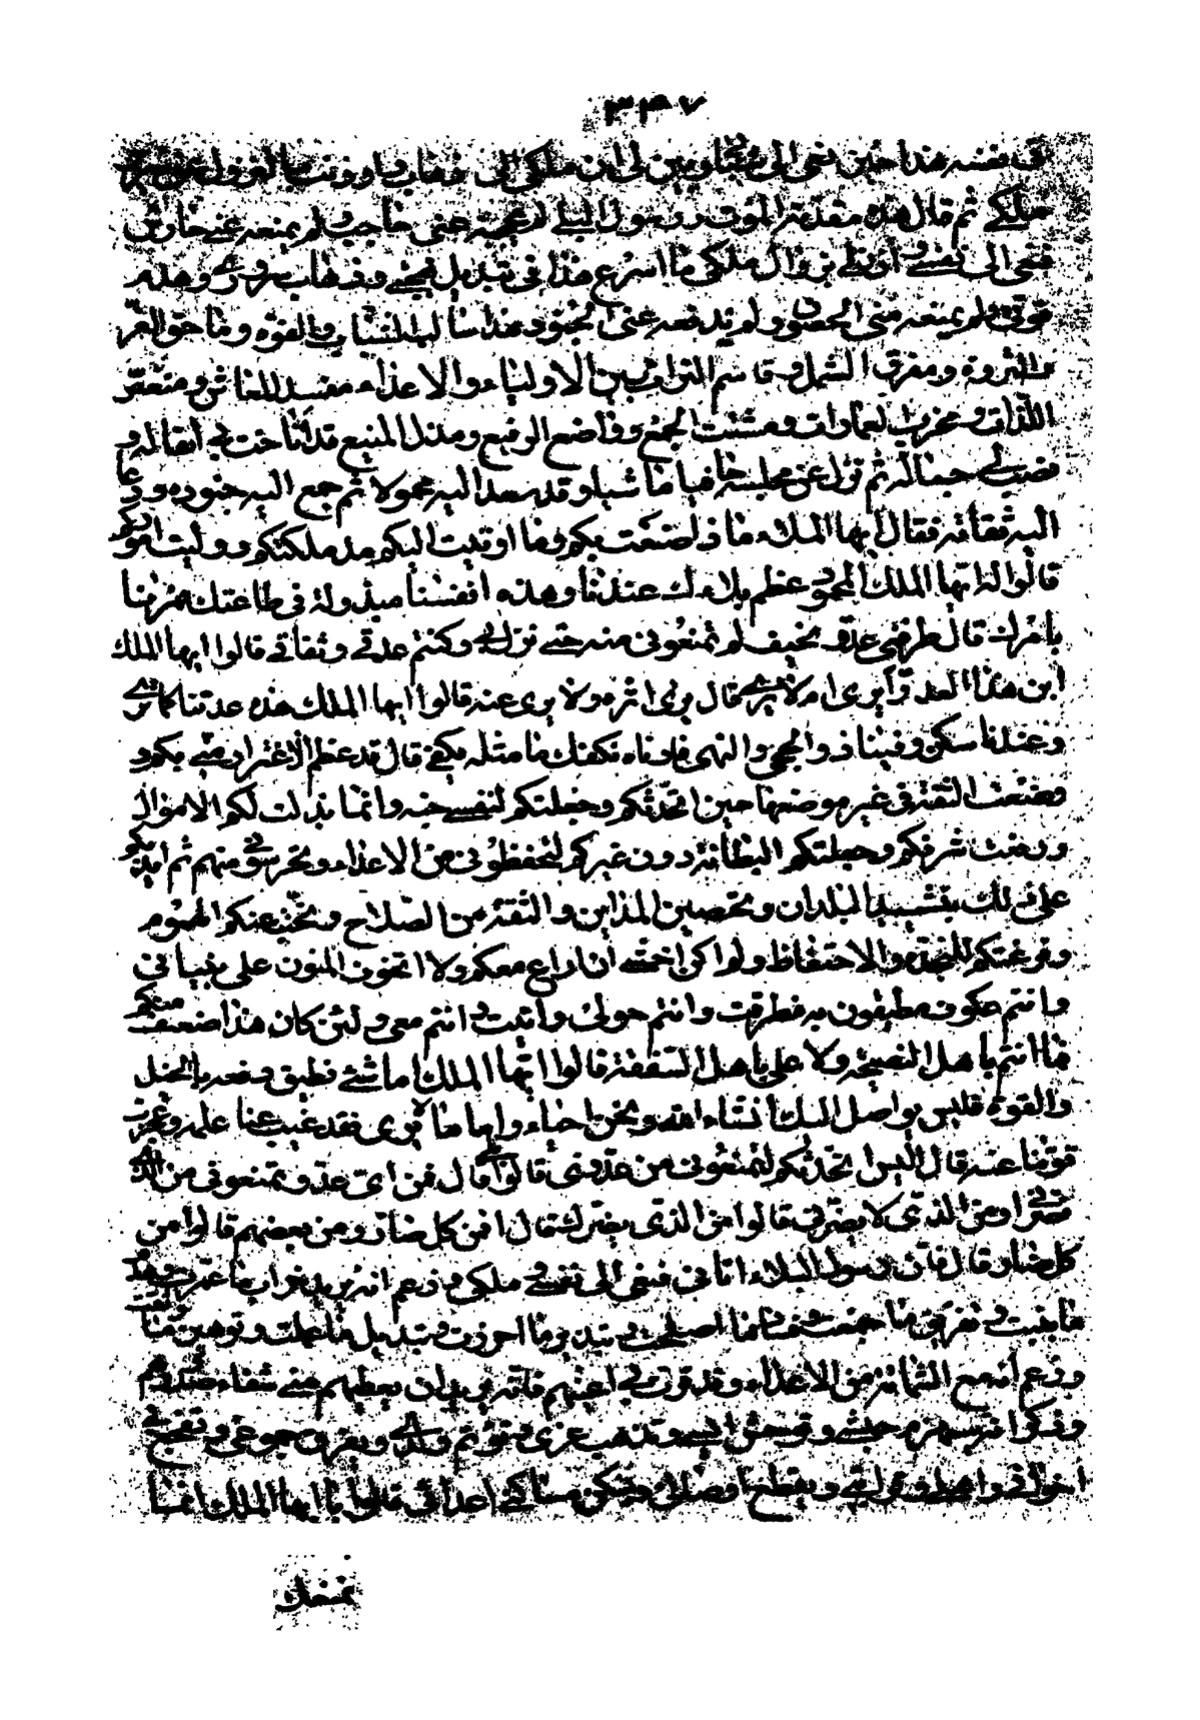 ٣٤٧
في نفسه هذا حين نعى الي شبابي وبين لي ان ملكي الى ذهاب واوذنت بالنزول عن سرير
ملكي ثم قال هذه مقدمة الموت ورسول البلى لم يحجبه عني حاجب ولم يمنعه عني حارس
فنعى الي نفسي وآذنني بزوال ملكي ما اسرع هذا في تبديل بهجتي وذهاب سروري وهدم
قوتي ولم يمنعه مني الحصون ولم تدفعه عني الجنود هذا سالب الشباب والقوة وماحق العز
والثروة ومفرق الشمل وقاسم التراث بين الاولياء والاعداء مفسد المعاش ومنغص
اللذات ومخرب العمارات ومشتت الجمع وواضع الرفيع ومذل المنيع قد اناخت بي اثقاله و
نصب لي حباله ثم نزل عن مجلسه حافيا ماشيا وقد صعد اليه محمولا ثم جمع اليه جنوده ودعا
اليه ثقاته فقال ايها الملاء ماذا صنعت بكم وما اوتيت اليكم منذ ملكتكم ووليت اموركم
قالوا له ايها الملك المحمود عظم بلاءك عندنا وهذه انفسنا مبذولة في طاعتك فمرنا
بامرك قال طرقني عدو مخيف لم تمنعوني منه حتى نزل بي وكنتم عدتي وثقاتي قالوا ايها الملك
اين هذا العدو أيرى ام لا يرى قال يرى اثره ولا يرى عينه قالوا ايها الملك هذه عدتنا كما ترى
وعندنا سكن وفينا ذوو الحجى والنهى فارناه نكفك ما مثله يكفى قال قد عظم الاغترار مني بكم و
وضعت الثقة في غير موضعها حين اتخذتكم وجعلتكم لنفسي جنة وانما بذلت لكم الاموال
ورفعت شرفكم وجعلتكم البطانة دون غيركم لتحفظوني من الاعداء وتحرسوني منهم ثم ايدتكم
على ذلك بتشييد البلدان وتحصين المداين والثقة من السلاح ونحيت عنكم الهموم
وفرغتكم للنجدة والاحتفاظ ولم اكن اخشى ان اراع معكم ولا اتخوف المنون على بنياني
وانتم عكوف مطيفون به فطرقت وانتم حولي واتيت وانتم معي ولئن كان هذا ضعف منكم
فما انتم باهل النصيحة ولا علي باهل الشفقة قالوا ايها الملك اما شئ نطيق دفعه بالخيل
والقوة فليس بواصل اليك انشاء الله ونحن احياء واما ما لا يرى فقد غيب عنا علمه وعجزت
قوتنا عنه قال اليس اتخذتكم لتمنعوني من عدوي قالوا بلى قال فمن اي عدو تمنعوني من الذي
يضرني او من الذي لا يضرني قالوا من الذي يضرك قال افمن كل ضار او من بعضهم قالوا من
كل ضار قال فان رسول البلاء اتاني فنعى الي نفسي وملكي وزعم انه يريد خراب ما عمرت وهدم
ما بنيت وتفريق ما جمعت وفساد ما اصلحت وتبذير ما احرزت وتبديل ما عملت وتوهين ما وثقت
وزعم انه مع الشماتة من الاعداء وقد قرت بي اعينهم فانه يريد ان يعطيهم مني شفاء صدورهم
وذكر انه سيهزم جيشي ويوحش انسي ويذهب عزي ويؤتم ولدي ويفرق جموعي ويفجع بي
اخواني واهلي وقرابتي ويقطع اوصالي ويسكن مساكني اعدائي قالوا يا ايها الملك انما
نمنعك